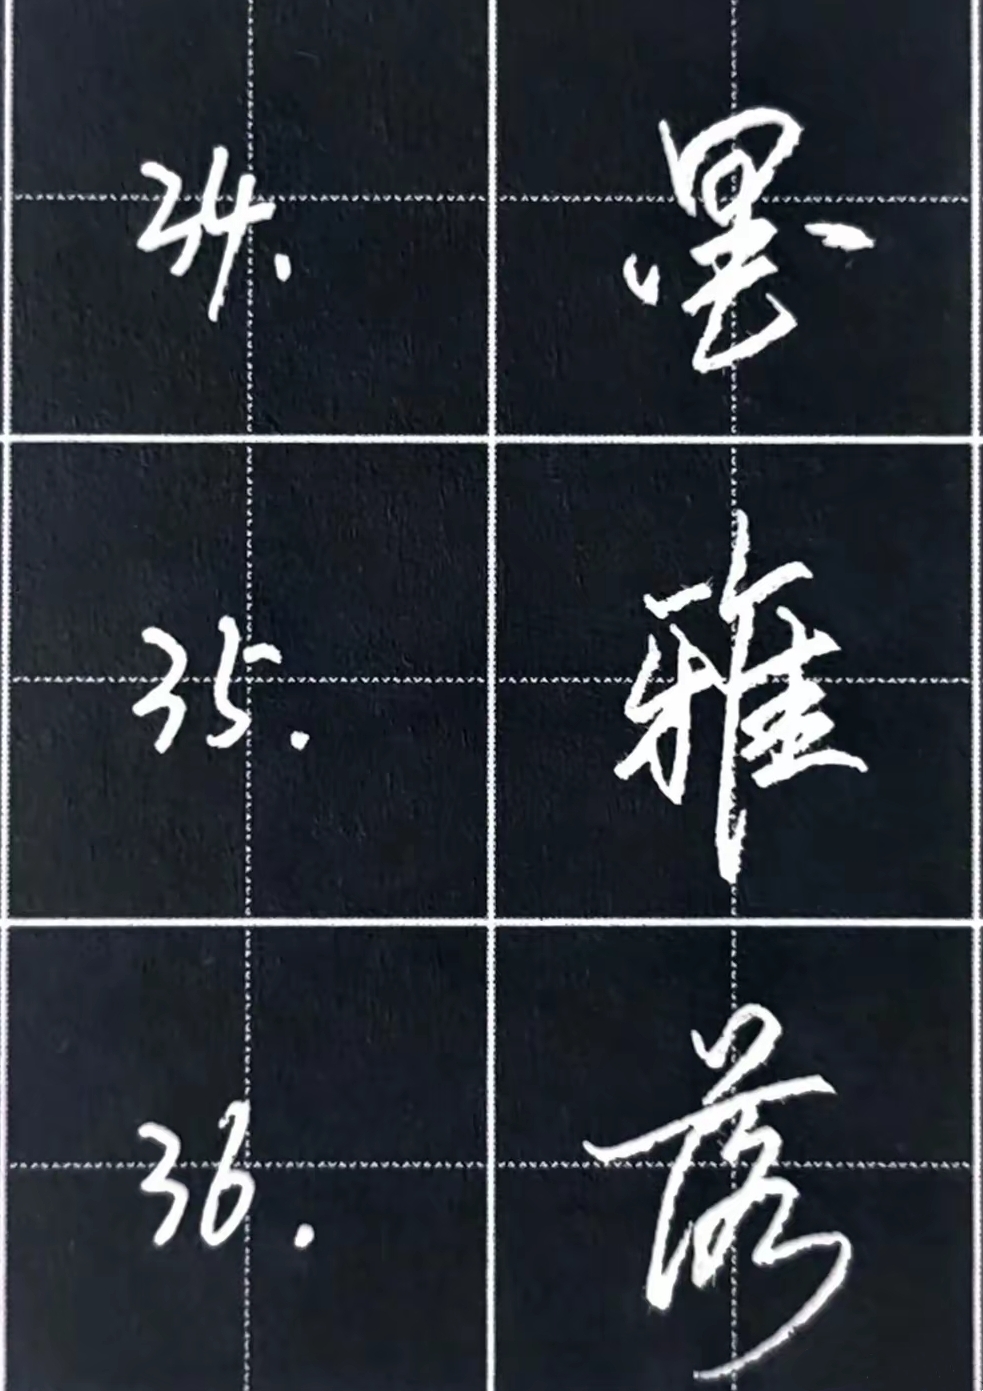 34. 墨
35. 雅
36.